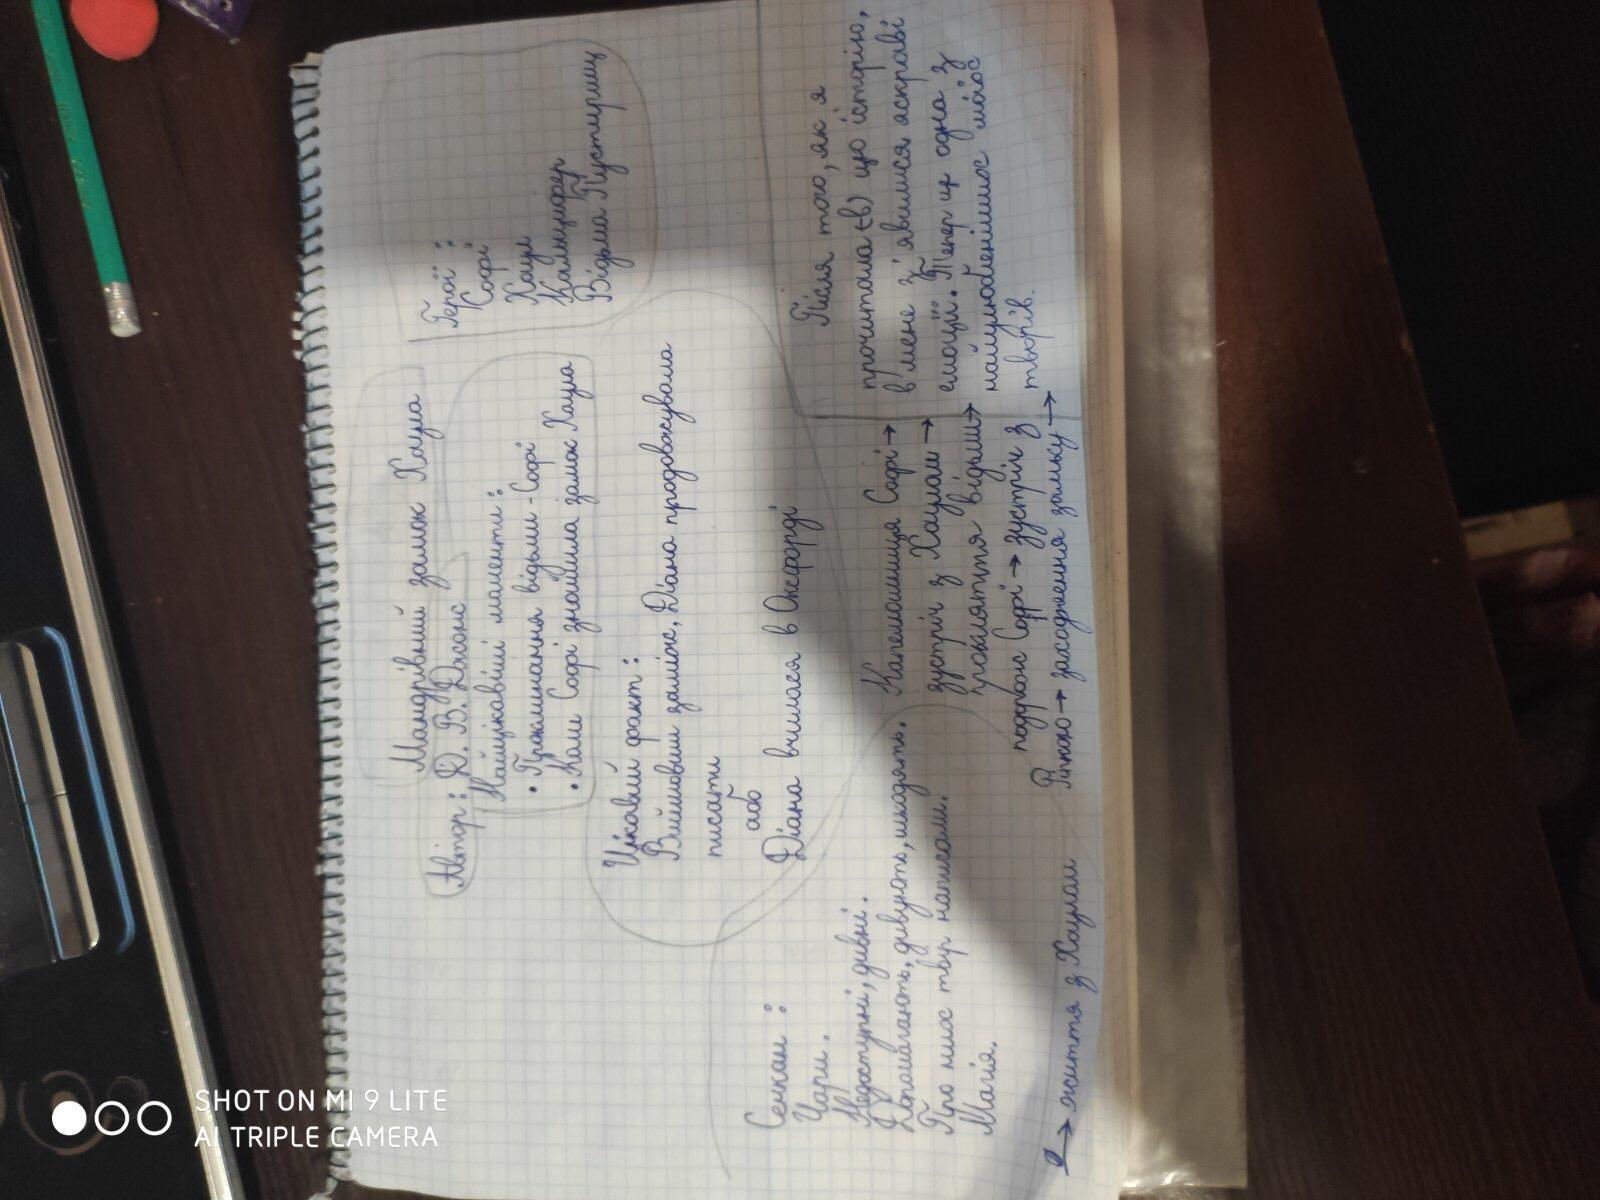 Мандрівний замок Хаула
Автор: Д. В. Джонс
Герої:
Софі
Хаул
Кальцифер
Відьма Пустирищ
Найцікавіші моменти:
• Проклинання відьми - Софі
• Коли Софі знайшла замок Хаула
Цікавий факт:
Вийшовши заміж, Діана продовжувала
писати
або
Діана вчилася в Оксфорді
Сенкан:
Чари.
Недоступні, дивні.
Допомагають, дивують, шкодять.
Про них твір написали.
Магія.
Капелюшниця Софі →
зустріч з Хаулом →
прокляття відьми →
подорож Софі → зустріч з
Ріпкою → знаходження замку →
→ життя з Хаулом
Після того, як я
прочитала(-в) цю історію,
в мене з'явилися яскраві
емоції. Тепер це одна з
найулюбленіших моїх
творів.
SHOT ON MI 9 LITE
AI TRIPLE CAMERA